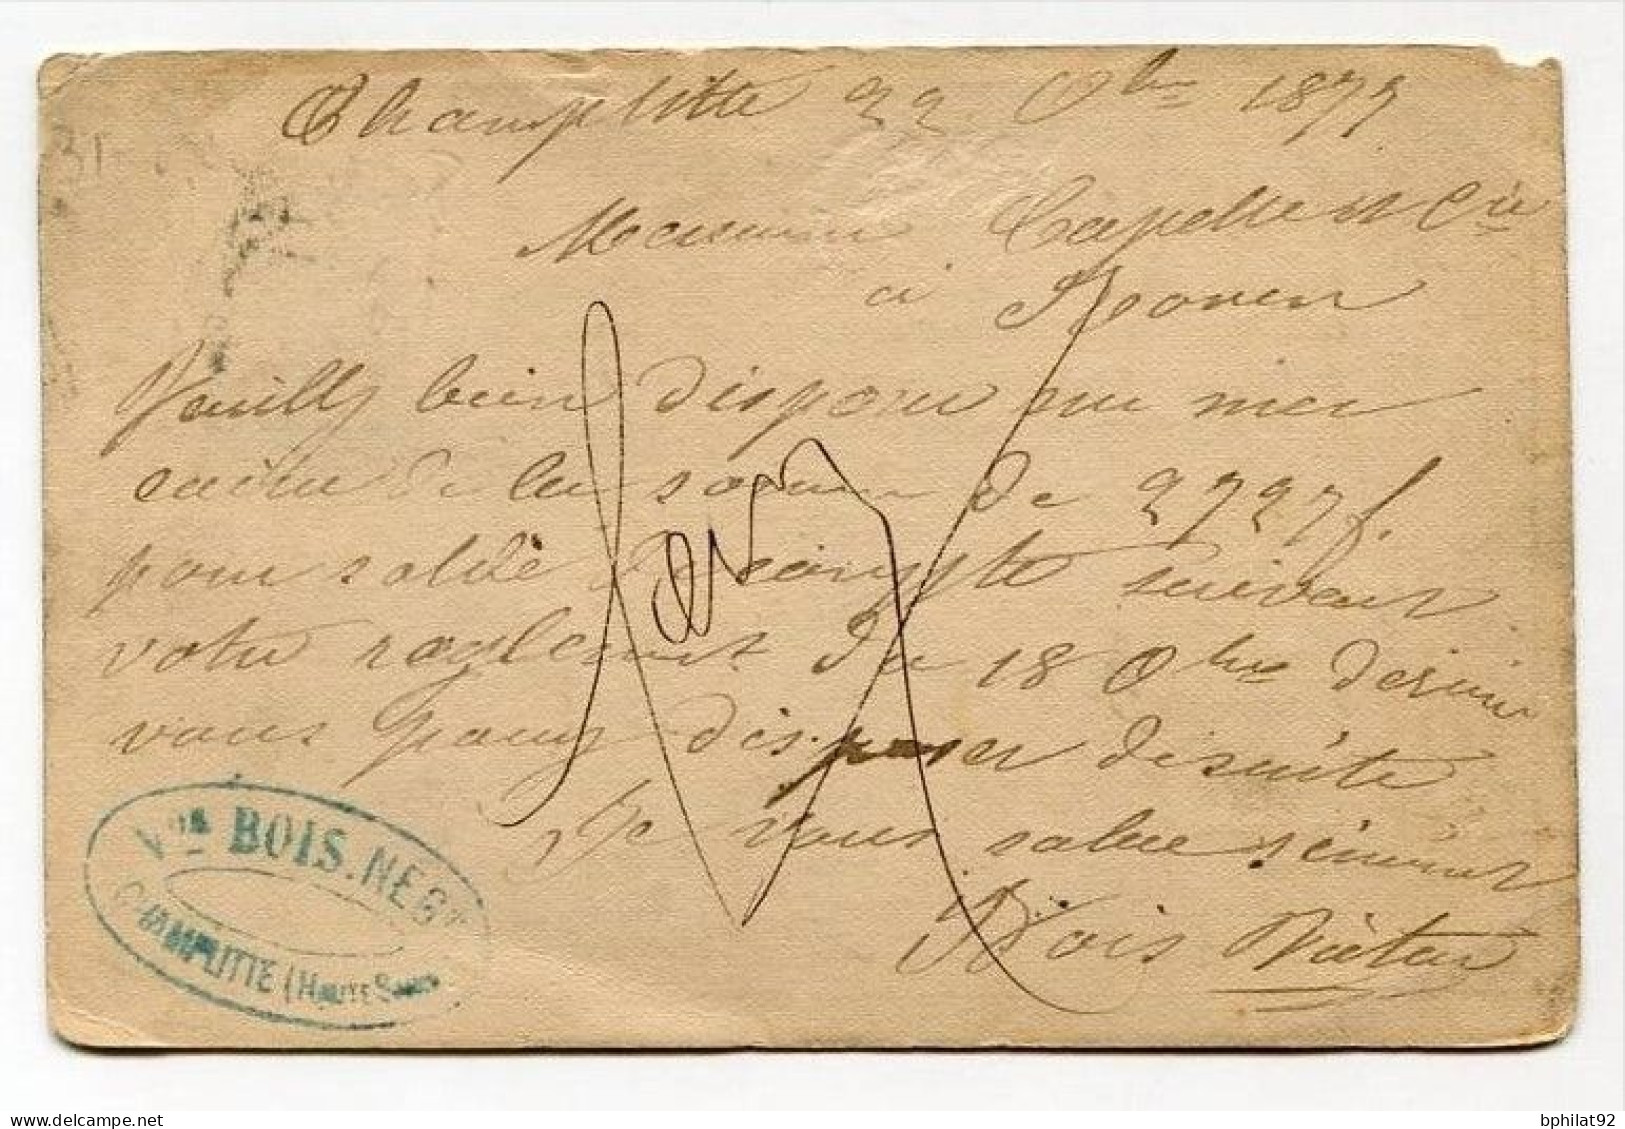 Champlitte 22 8bre 1877
Messieurs Capelle et Cie
à Rouen
Veuilly bien disposer sur ma
caisse de la somme de 2727f.
pour solde de compte suivant
votre reglement du 18 8bre dernier
vous pouvez disposer desuite
Je vous salue
Bois
Vve BOIS. NÉGT
CHAMPLITTE (HAUTE SAÔNE)
bphilat92